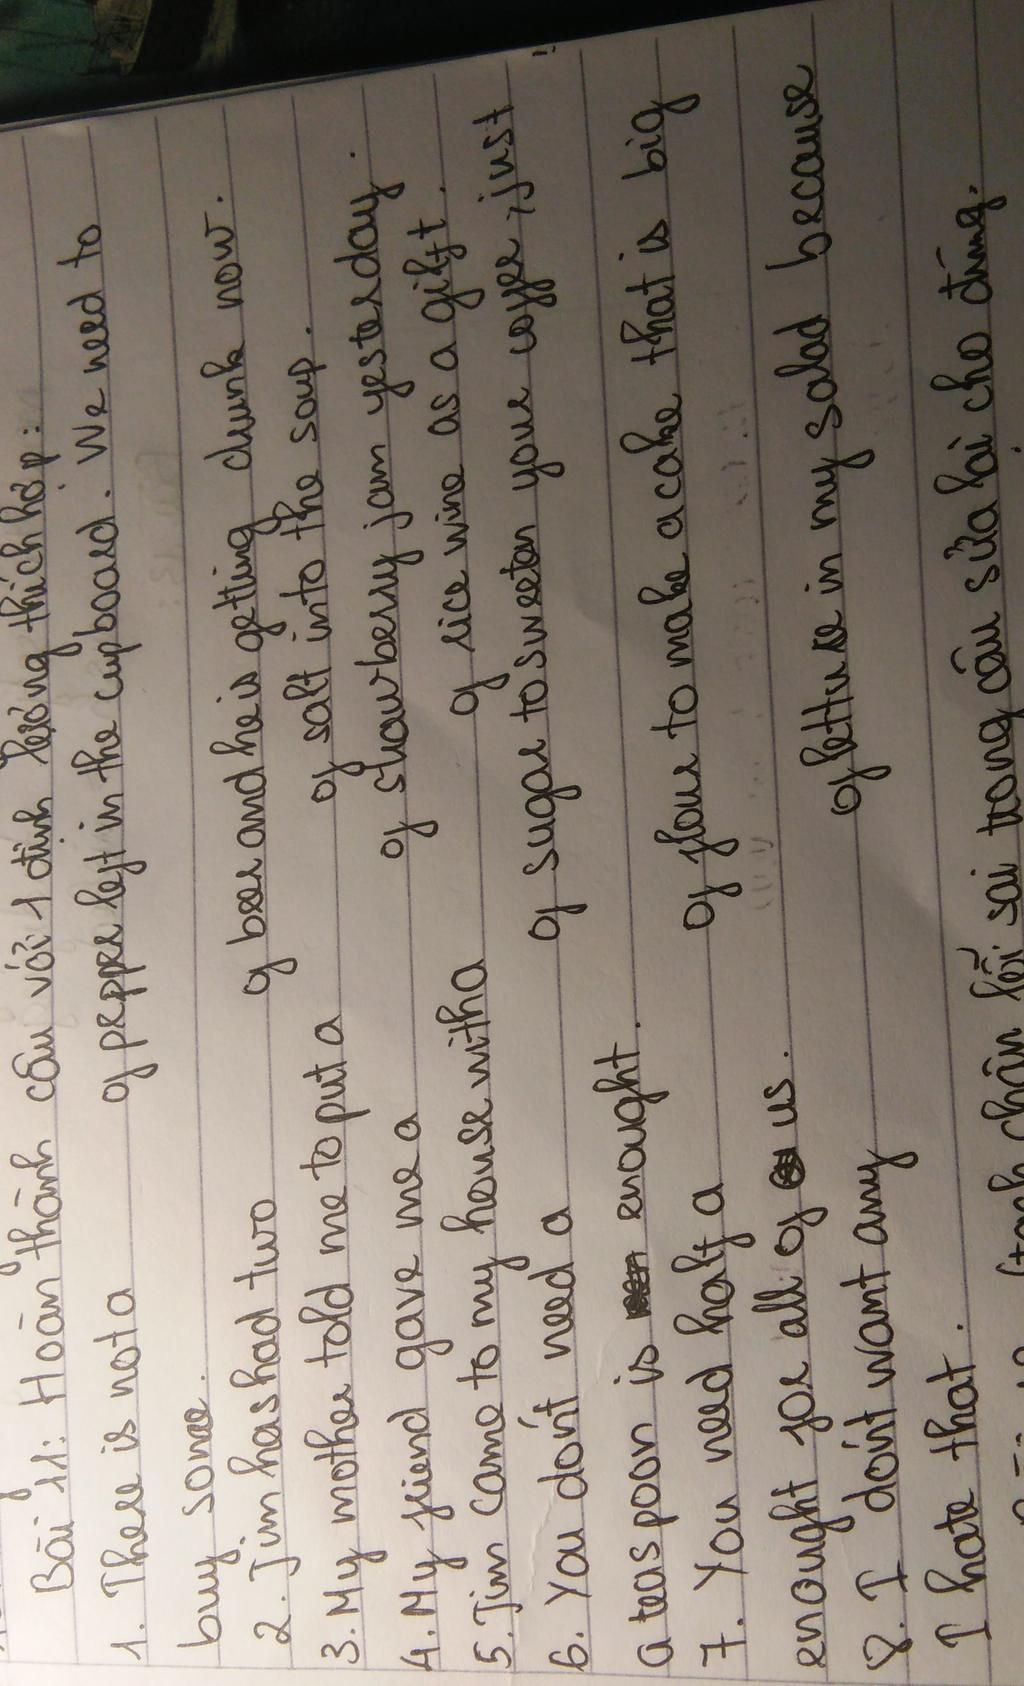 Bài 11: Hoàn thành câu với 1 định lượng thích hợp:
1. There is not a of pepper left in the cupboard. We need to
buy some.
2. Jim has had two of beer and he is getting drunk now.
3. My mother told me to put a of salt into the soup.
4. My friend gave me a of strawberry jam yesterday.
5. Jim came to my house with a of rice wine as a gift.
6. You don't need a of sugar to sweeten your coffee, just
a teaspoon is enought.
7. You need half a of flour to make a cake that is big
enought for all of us.
8. I don't want any of lettuce in my salad because
I hate that.
chân lỗi sai trong câu sửa lại cho đúng.